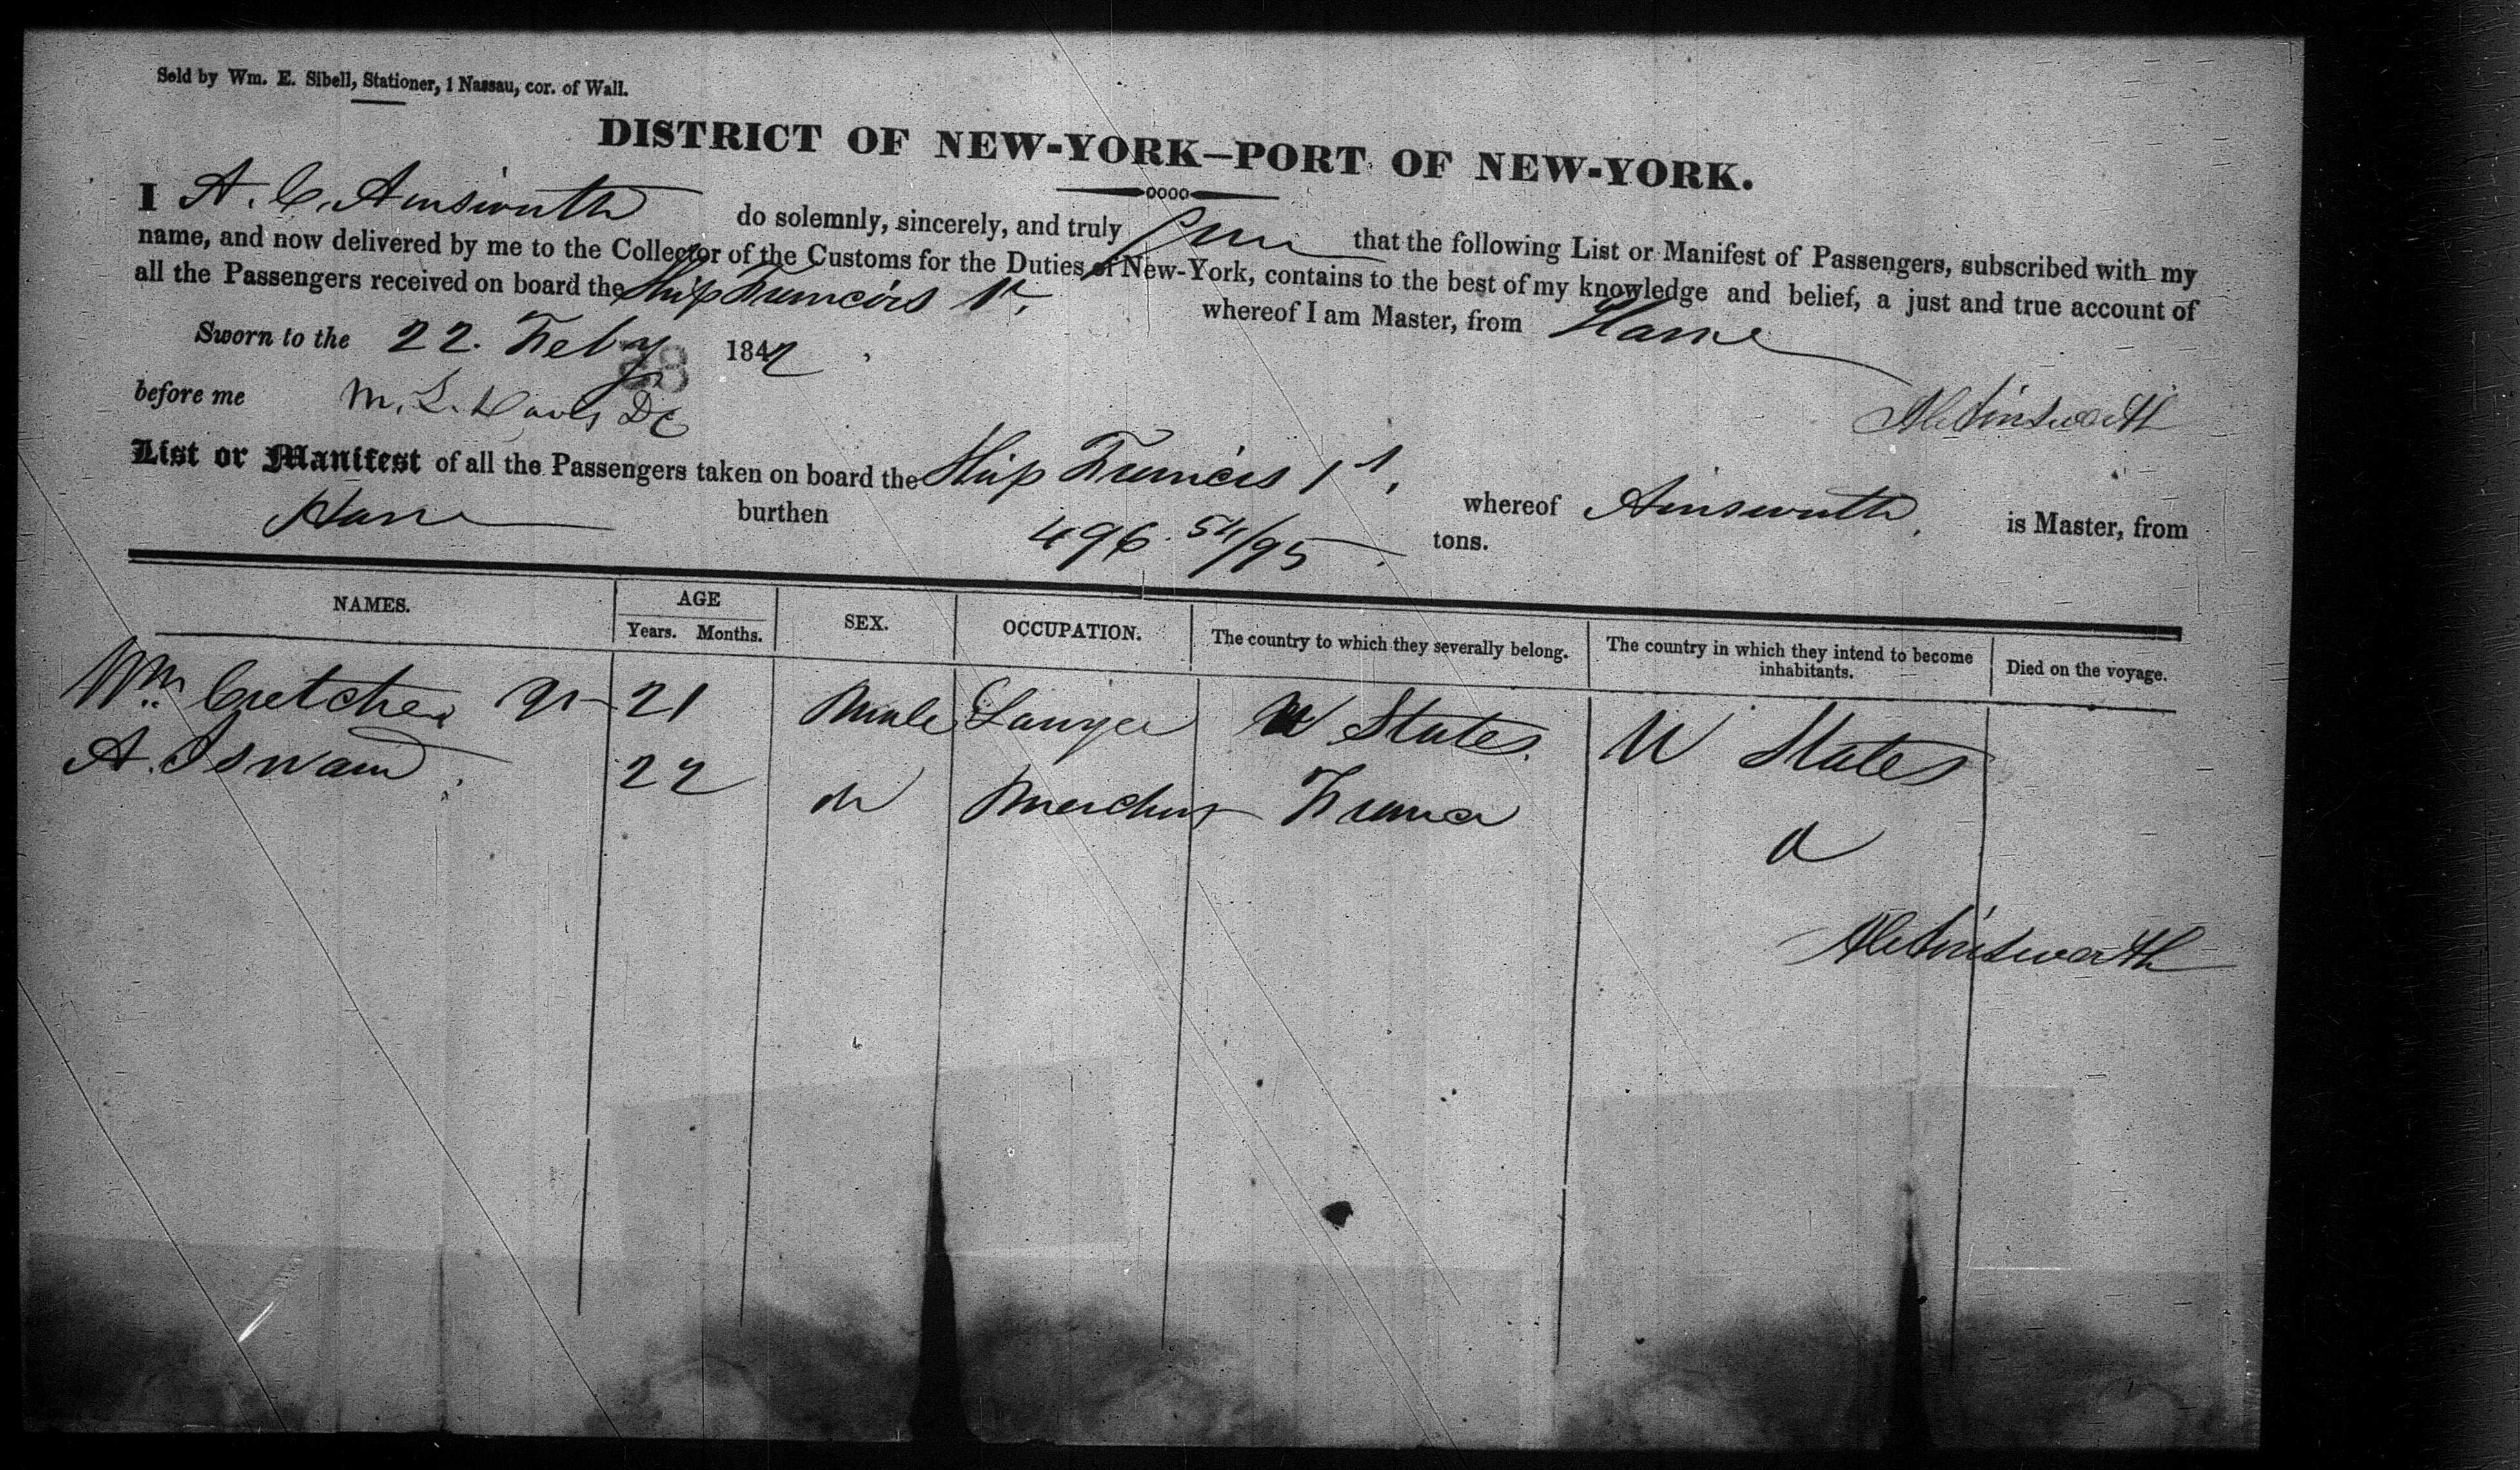 Sold by Wm. E. Sibell, Stationer, 1 Nassau, cor. of Wall.
DISTRICT OF NEW-YORK—PORT OF NEW-YORK.
I A. C. Ainsworth do solemnly, sincerely, and truly that the following List or Manifest of Passengers, subscribed with my
name, and now delivered by me to the Collector of the Customs for the Duties of New-York, contains to the best of my knowledge and belief, a just and true account of
all the Passengers received on board the Ship Francis 1st. whereof I am Master, from Havre
Sworn to the 22. Feby 1842
88
before me M. L. Davis DC
A C Ainsworth
List or Manifest of all the Passengers taken on board the Ship Francis 1st, whereof Ainsworth, is Master, from
Havre burthen 496 54/95 tons.
NAMES. AGE SEX. OCCUPATION. The country to which they severally belong. The country in which they intend to become inhabitants. Died on the voyage.
Years. Months.
Wm. 21 Male Lawyer U States U States
A. 22 do Merchant France do
A C Ainsworth